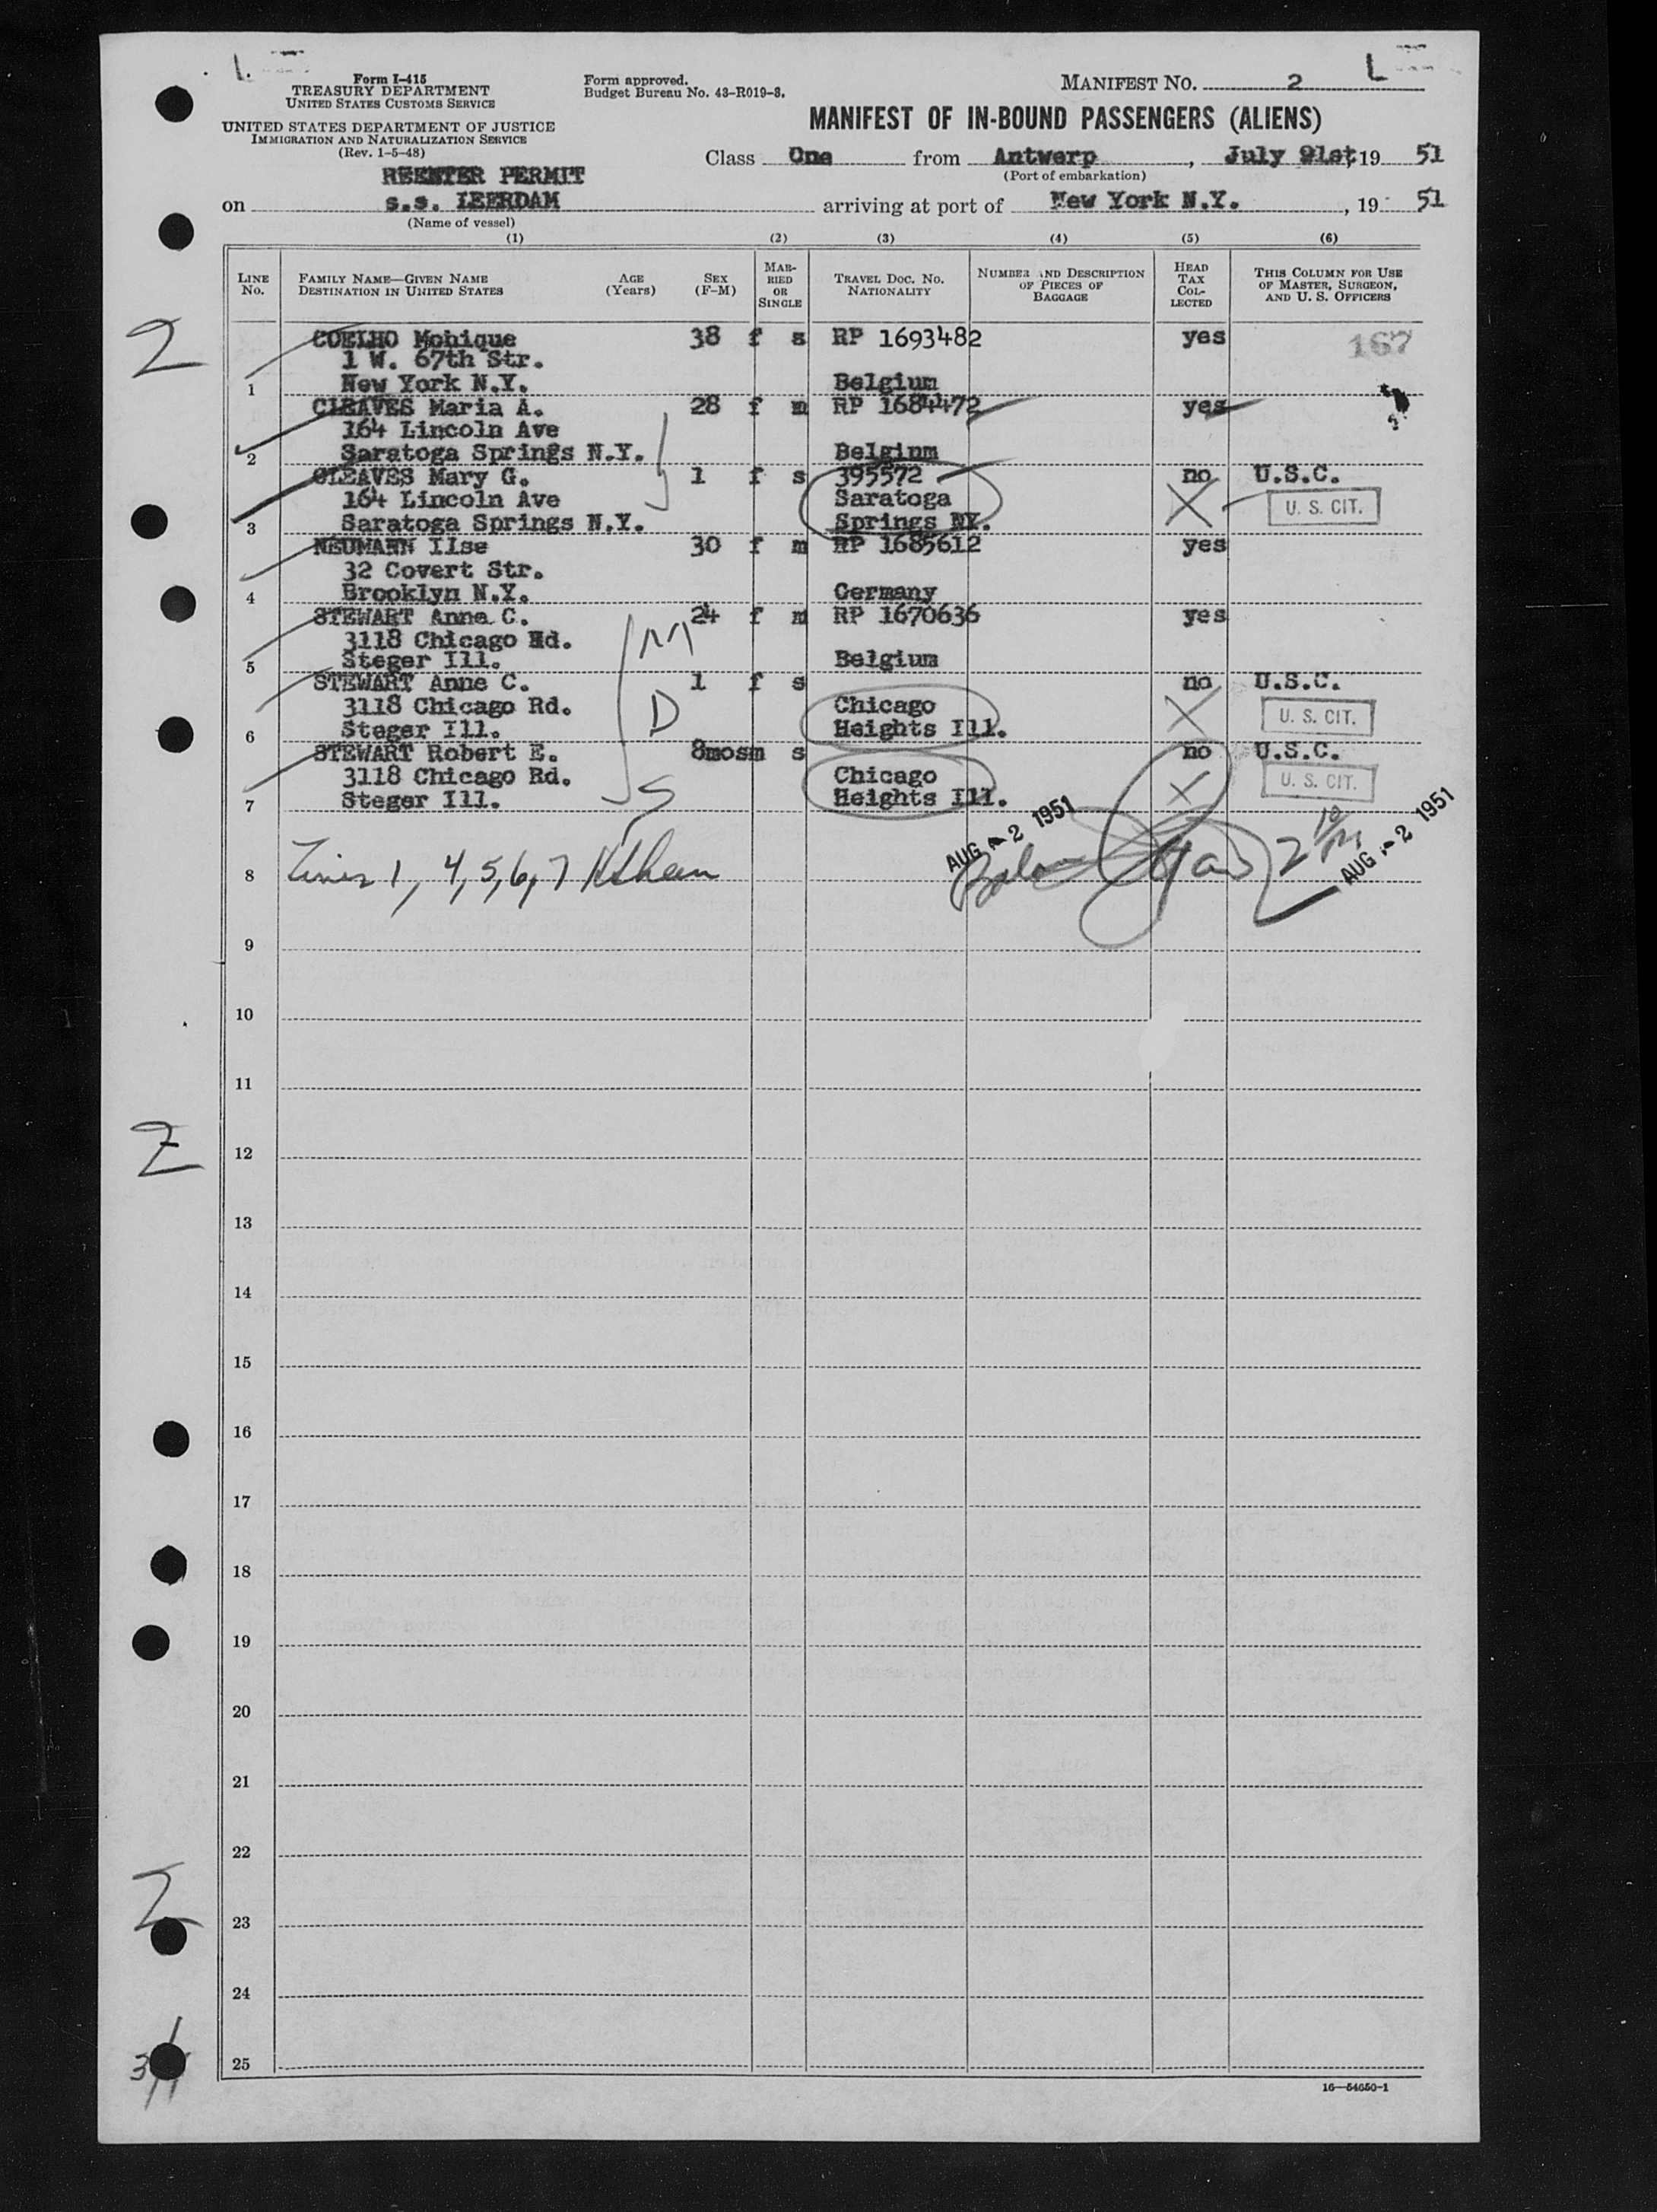 Form I-415
TREASURY DEPARTMENT
UNITED STATES CUSTOMS SERVICE
UNITED STATES DEPARTMENT OF JUSTICE
IMMIGRATION AND NATURALIZATION SERVICE
(Rev. 1-5-48)
Form approved.
Budget Bureau No. 43-R019-3.
MANIFEST NO. 2
L
MANIFEST OF IN-BOUND PASSENGERS (ALIENS)
Class One from Antwerp, July 21st, 19 51
(Port of embarkation)
REENTER PERMIT
on s.s. LEERDAM arriving at port of New York N.Y., 19 51
(Name of vessel)
(1) (2) (3) (4) (5) (6)
LINE No. FAMILY NAME—GIVEN NAME DESTINATION IN UNITED STATES AGE (Years) SEX (F-M) MARRIED OR SINGLE TRAVEL DOC. NO. NATIONALITY NUMBER AND DESCRIPTION OF PIECES OF BAGGAGE HEAD TAX COLLECTED THIS COLUMN FOR USE OF MASTER, SURGEON, AND U. S. OFFICERS
2
COELHO Monique 38 f s RP 1693482 yes 167
1 W. 67th Str.
1 New York N.Y. Belgium
CLEAVES Maria A. 28 f m RP 1684472 yes
164 Lincoln Ave
2 Saratoga Springs N.Y. Belgium
CLEAVES Mary G. 1 f s 395572 no U.S.C.
164 Lincoln Ave Saratoga U. S. CIT.
3 Saratoga Springs N.Y. Springs NY.
NEUMANN Ilse 30 f m RP 1685612 yes
32 Covert Str.
4 Brooklyn N.Y. Germany
STEWART Anne C. 24 f m RP 1670636 yes
3118 Chicago Rd. M
5 Steger Ill. Belgium
STEWART Anne C. 1 f s no U.S.C.
3118 Chicago Rd. D Chicago U. S. CIT.
6 Steger Ill. Heights Ill.
STEWART Robert E. 8mosm s no U.S.C.
3118 Chicago Rd. Chicago U. S. CIT.
7 Steger Ill. S Heights Ill.
AUG 2 1951
AUG 2 1951
8 Lines 1, 4, 5, 6, 7
9
10
11
2
12
13
14
15
16
17
18
19
20
21
22
2
23
24
25
16—54650-1